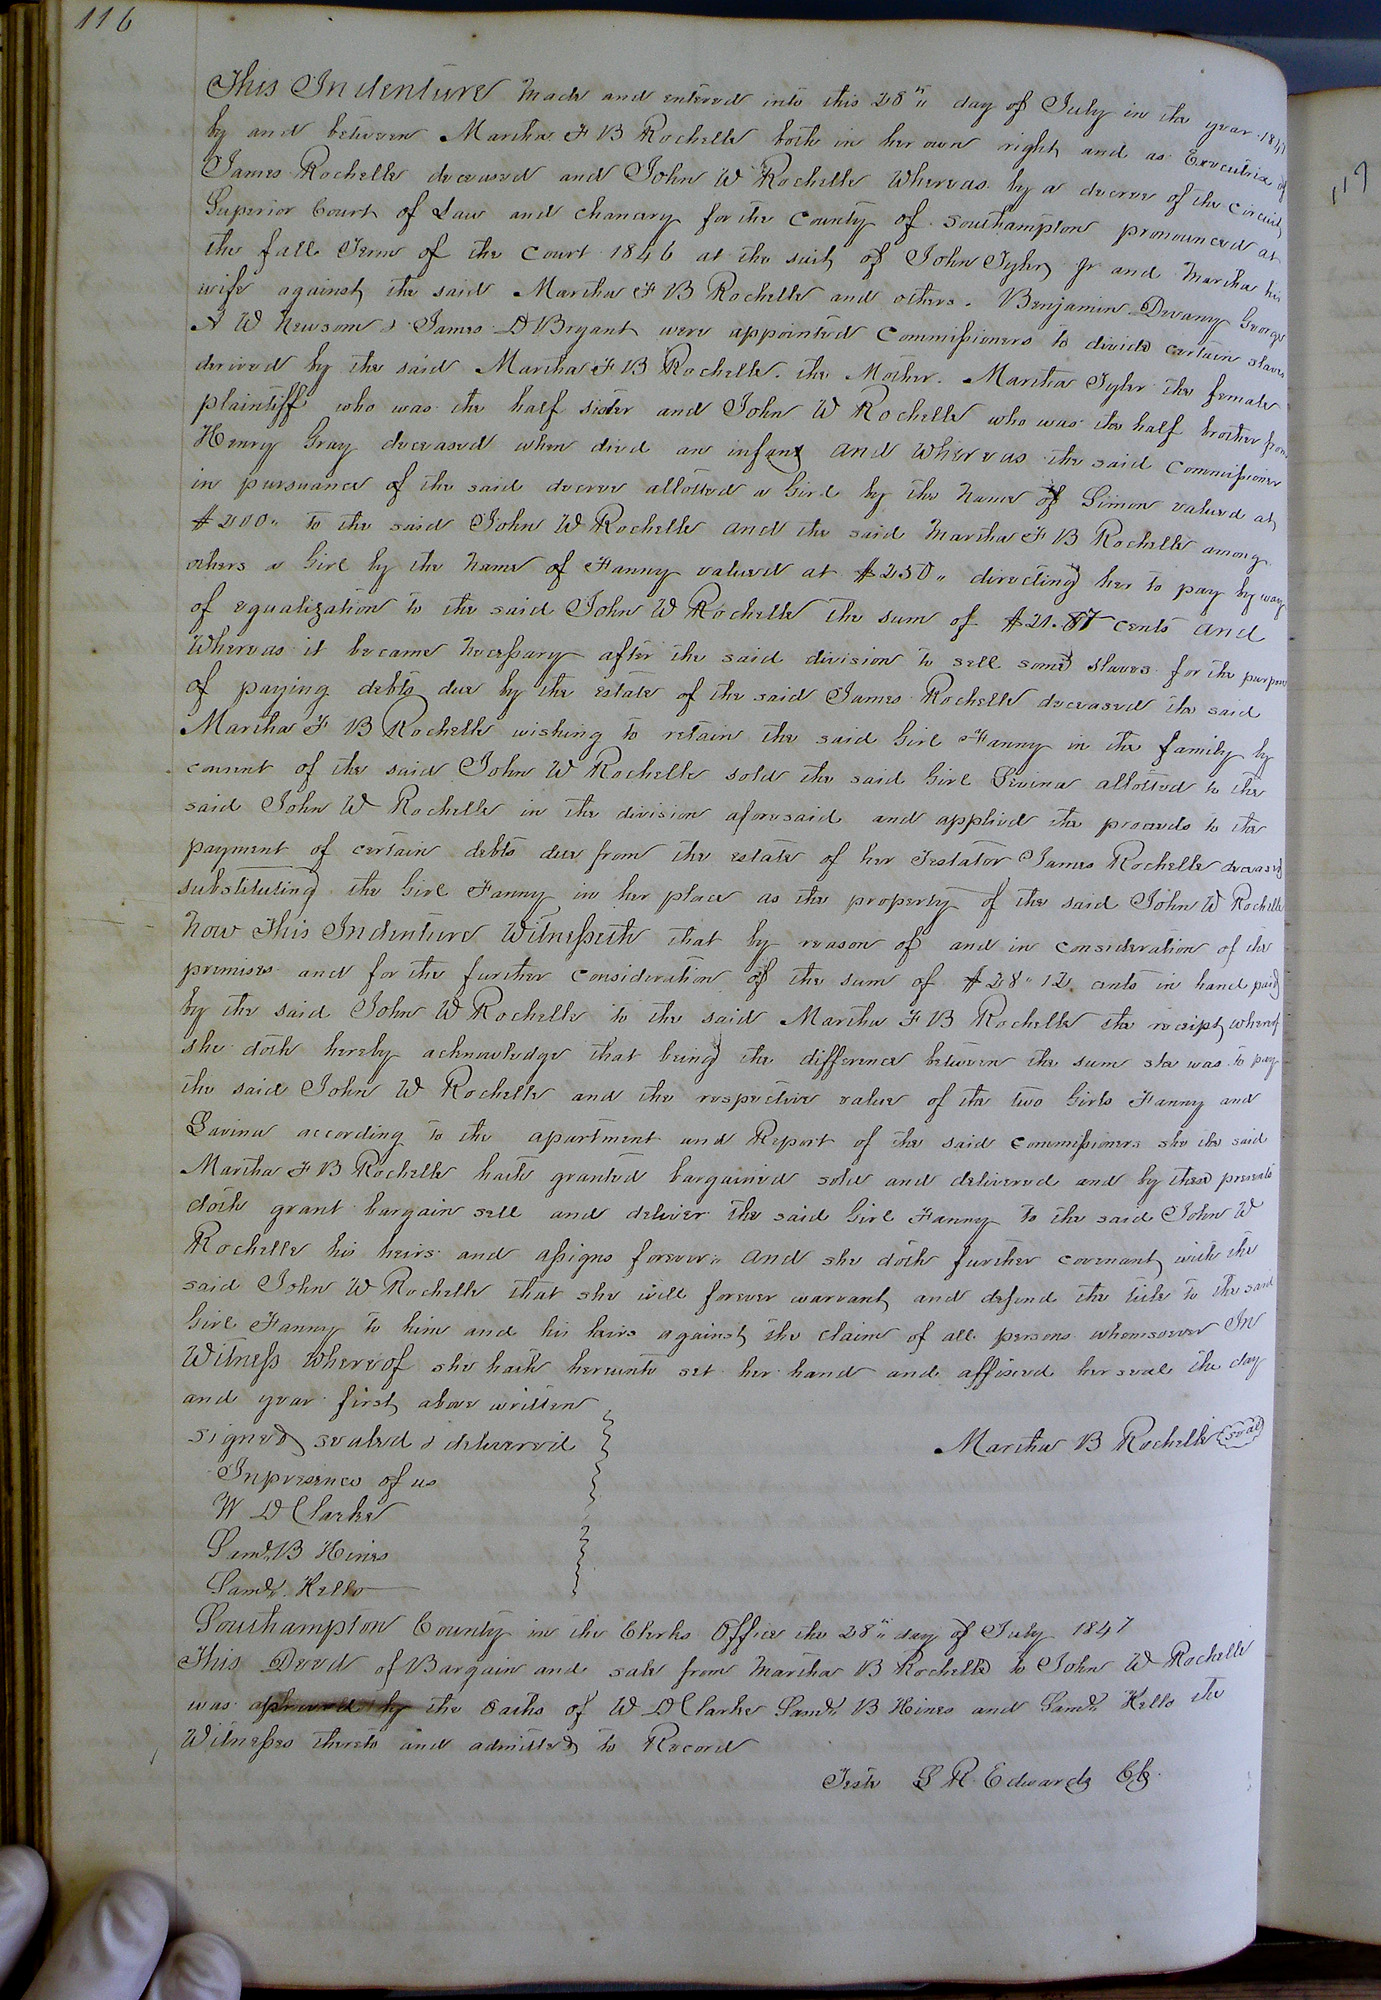 116
This Indenture made and entered into this 28th day of July in the year 1847
by and between Martha F B Rochelle both in her own right and as Executrix of
James Rochelle deceased and John W Rochelle Whereas by a decree of the Circuit
Superior Court of Law and chancery for the County of Southampton pronounced at
the fall Term of the Court 1846 at the suit of John Tyler Jr and Martha his
wife against the said Martha F B Rochelle and others. Benjamin Devany George
N W Newsom & James D Bryant were appointed Commissioners to divide certain slaves
derived by the said Martha F B Rochelle. the Mother. Martha Tyler the female
plaintiff who was the half sister and John W Rochelle who was the half brother from
Henry Gray deceased when died an infant and whereas the said Commissioner
in pursuance of the said decree allotted a Girl by the name of valued at
$200 to the said John W Rochelle and the said Martha F B Rochelle among
others a Girl by the name of Fanny valued at $250 directing her to pay by way
of equalization to the said John W Rochelle the sum of $21.87 cents and
Whereas it became necessary after the said division to sell some slaves for the purpose
of paying debts due by the estate of the said James Rochelle deceased the said
Martha F B Rochelle wishing to retain the said Girl Fanny in the family by
consent of the said John W Rochelle sold the said Girl Levina allotted to the
said John W Rochelle in the division aforesaid and applied the proceeds to the
payment of certain debts due from the estate of her Testator James Rochelle deceased
substituting the Girl Fanny in her place as the property of the said John W Rochelle
Now This Indenture Witnesseth that by reason of and in consideration of the
premises and for the further consideration of the sum of $28.12 cents in hand paid
by the said John W Rochelle to the said Martha F B Rochelle the receipt whereof
she doth hereby acknowledge that being the difference between the sum she was to pay
the said John W Rochelle and the respective value of the two Girls Fanny and
Lavina according to the apartment and Report of the said commissioners she the said
Martha F B Rochelle hath granted bargained sold and delivered and by these presents
doth grant bargain sell and deliver the said Girl Fanny to the said John W
Rochelle his heirs and assigns forever. and she doth further covenant with the
said John W Rochelle that she will forever warrant and defend the title to the said
Girl Fanny to him and his heirs against the claim of all persons whomsoever In
Witness whereof she hath hereunto set her hand and affixed her seal the day
and year first above written
signed sealed & delivered
Martha B Rochelle seal
In presence of us
W D Clarke
Saml. B Hines
Saml. Kello
Southampton County in the Clerks Office the 28th day of July 1847
This Deed of Bargain and sale from Martha B Rochelle to John W Rochelle
was by the oaths of W D Clarke Saml. B Hines and Saml. Kello the
Witnesses thereto and admitted to Record
Teste L R Edwards CC
117